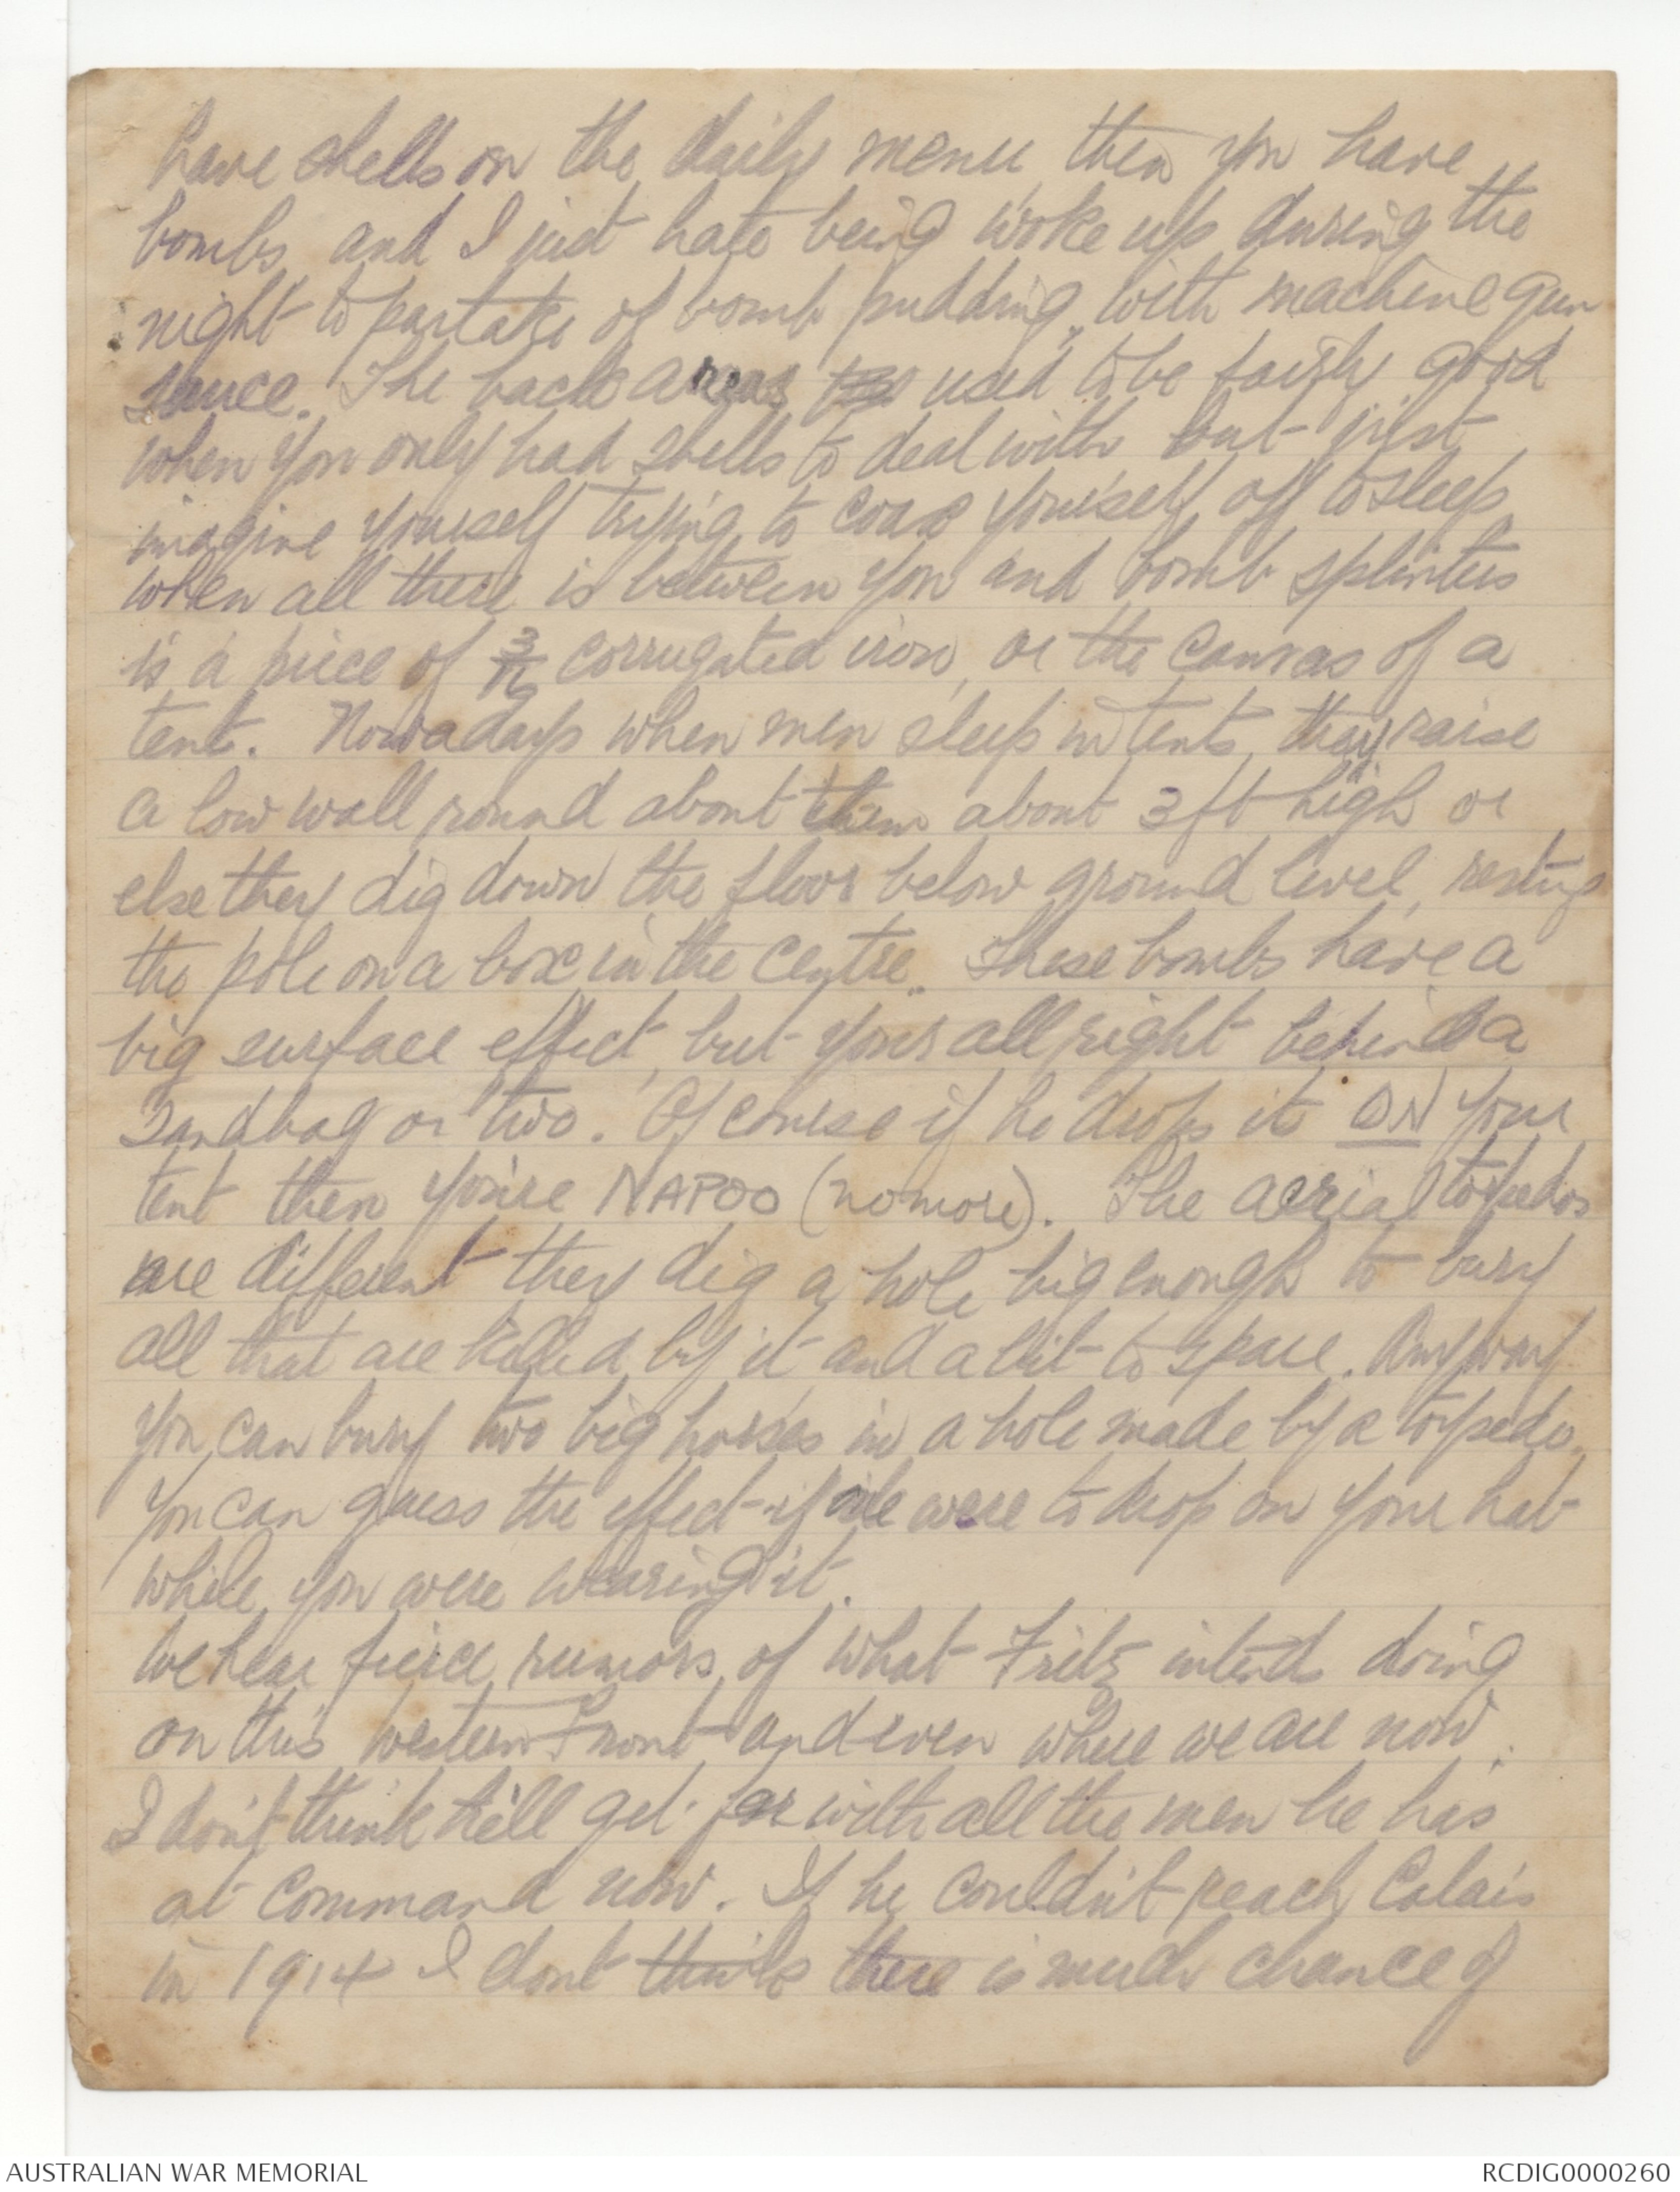 have shells on the daily menu then you have
bombs, and I just hate being woke up during the
night to partake of bomb pudding with machine gun
sauce. The back areas used to be fairly good
when you only had shells to deal with but just
imagine yourself trying to coax yourself off to sleep
when all there is between you and bomb splinters
is a piece of corrugated iron, or the canvas of a
tent. Nowadays when men sleep in tents, they raise
a low wall round about them about 3ft high or
else they dig down the floor below ground level, resting
the pole on a box in the centre. These bombs have a
big surface effect, but your all right behind a
sandbag or two. Of course if he drops it ON your
tent then you're NAPOO (no more). The aerial torpedos
are different they dig a hole big enough to bury
all that are killed by it and a bit to spare. Anyway
you can bury two big horses in a hole made by a torpedo.
You can guess the effect if one were to drop on your hat
while you were wearing it.
We hear fierce rumors of what Fritz intends doing
on this western Front and even where we are now.
I don't think he'll get far with all the men he has
at command now. If he couldn't reach Calais
in 1914 I dont think there is much chance of
AUSTRALIAN WAR MEMORIAL
RCDIG0000260